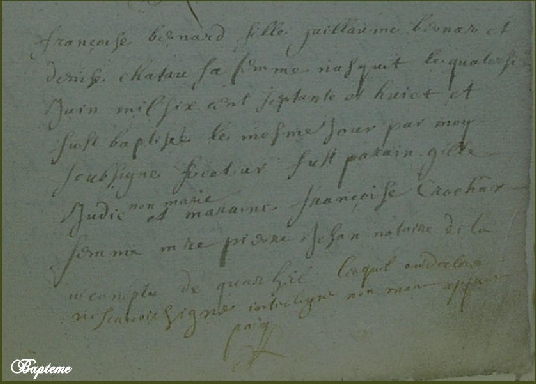 françoise bernard fille guillaume bernar et
denise chatau sa femme nasquit le quatorse
Juin mil six cent septante et huict et
fust baptisée le mesme Jour par moy
soubsigné fust parain gille
Judic non marié et maraine françoise Crochar
femme mre pierre Jehan notaire de la
vicompte de lequel
signe interligne non marie
Bapteme